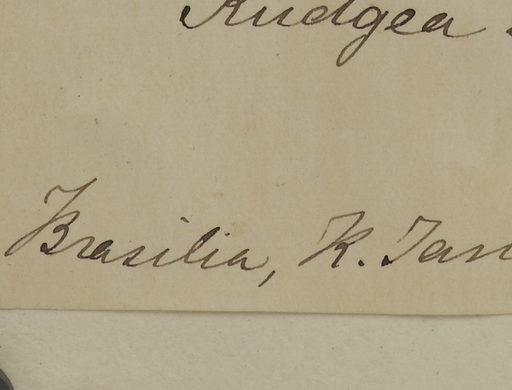 Rudgea
Brasilia, R. Jan